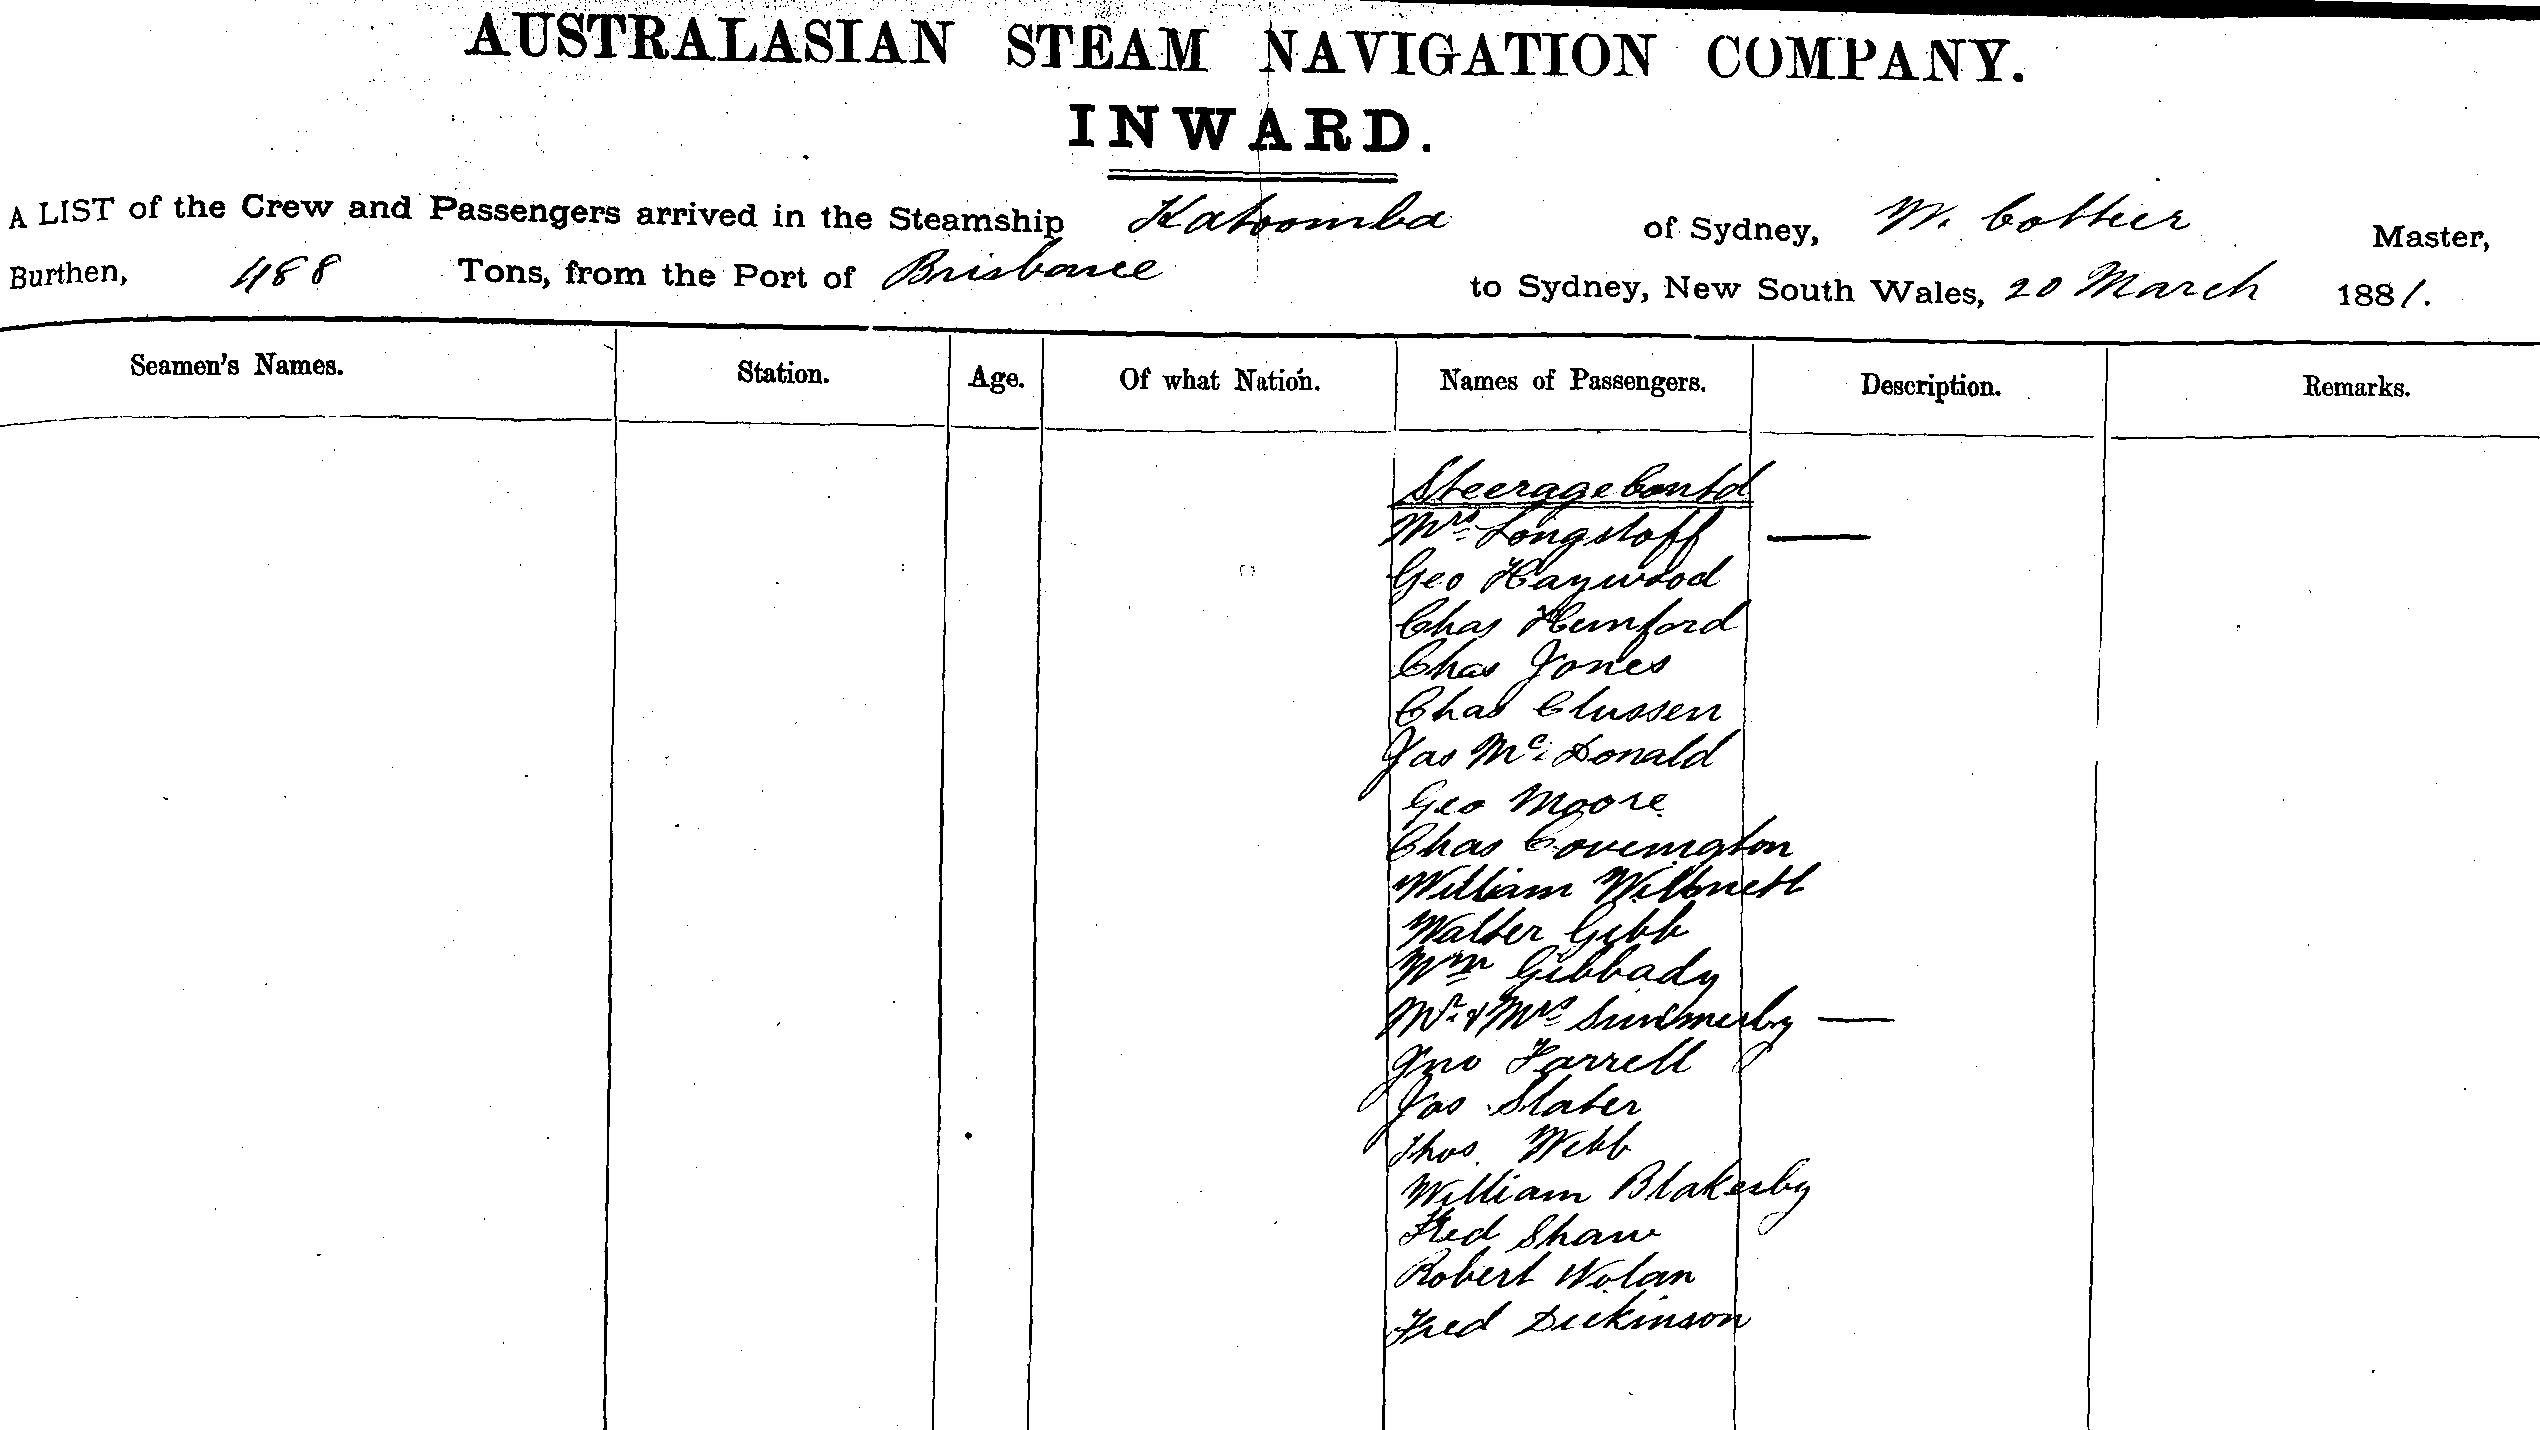 AUSTRALASIAN STEAM NAVIGATION COMPANY.
INWARD.
A LIST of the Crew and Passengers arrived in the Steamship Katoomba of Sydney, W. Cottier Master,
Burthen, 488 Tons, from the Port of Brisbane to Sydney, New South Wales, 20 March 1881.
Seamen's Names. Station. Age. Of what Nation. Names of Passengers. Description. Remarks.
Steerage Contd
Mrs Longstaff —
Geo Haywood
Chas Humford
Chas Jones
Chas Clussen
Jas McDonald
Geo Moore
Chas Covington
William
Walter Gibb
Wm Gibbady
Mr & Mrs —
Jno Farrell
Jas Slater
Thos. Webb
William Blakesby
Fred Shaw
Robert Nolan
Fred Dickinson